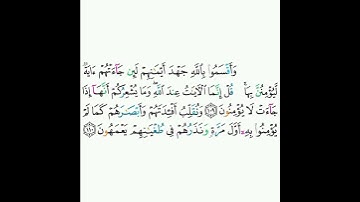 وَأَقْسَمُوا۟ بِٱللَّهِ جَهْدَ أَيْمَـٰنِهِمْ لَئِن جَآءَتْهُمْ ءَايَةٌ
لَّيُؤْمِنُنَّ بِهَا ۚ قُلْ إِنَّمَا ٱلْـَٔايَـٰتُ عِندَ ٱللَّهِ ۖ وَمَا يُشْعِرُكُمْ أَنَّهَآ إِذَا
جَآءَتْ لَا يُؤْمِنُونَ ١٠٩ وَنُقَلِّبُ أَفْـِٔدَتَهُمْ وَأَبْصَـٰرَهُمْ كَمَا لَمْ
يُؤْمِنُوا۟ بِهِۦٓ أَوَّلَ مَرَّةٍ وَنَذَرُهُمْ فِى طُغْيَـٰنِهِمْ يَعْمَهُونَ ١١٠